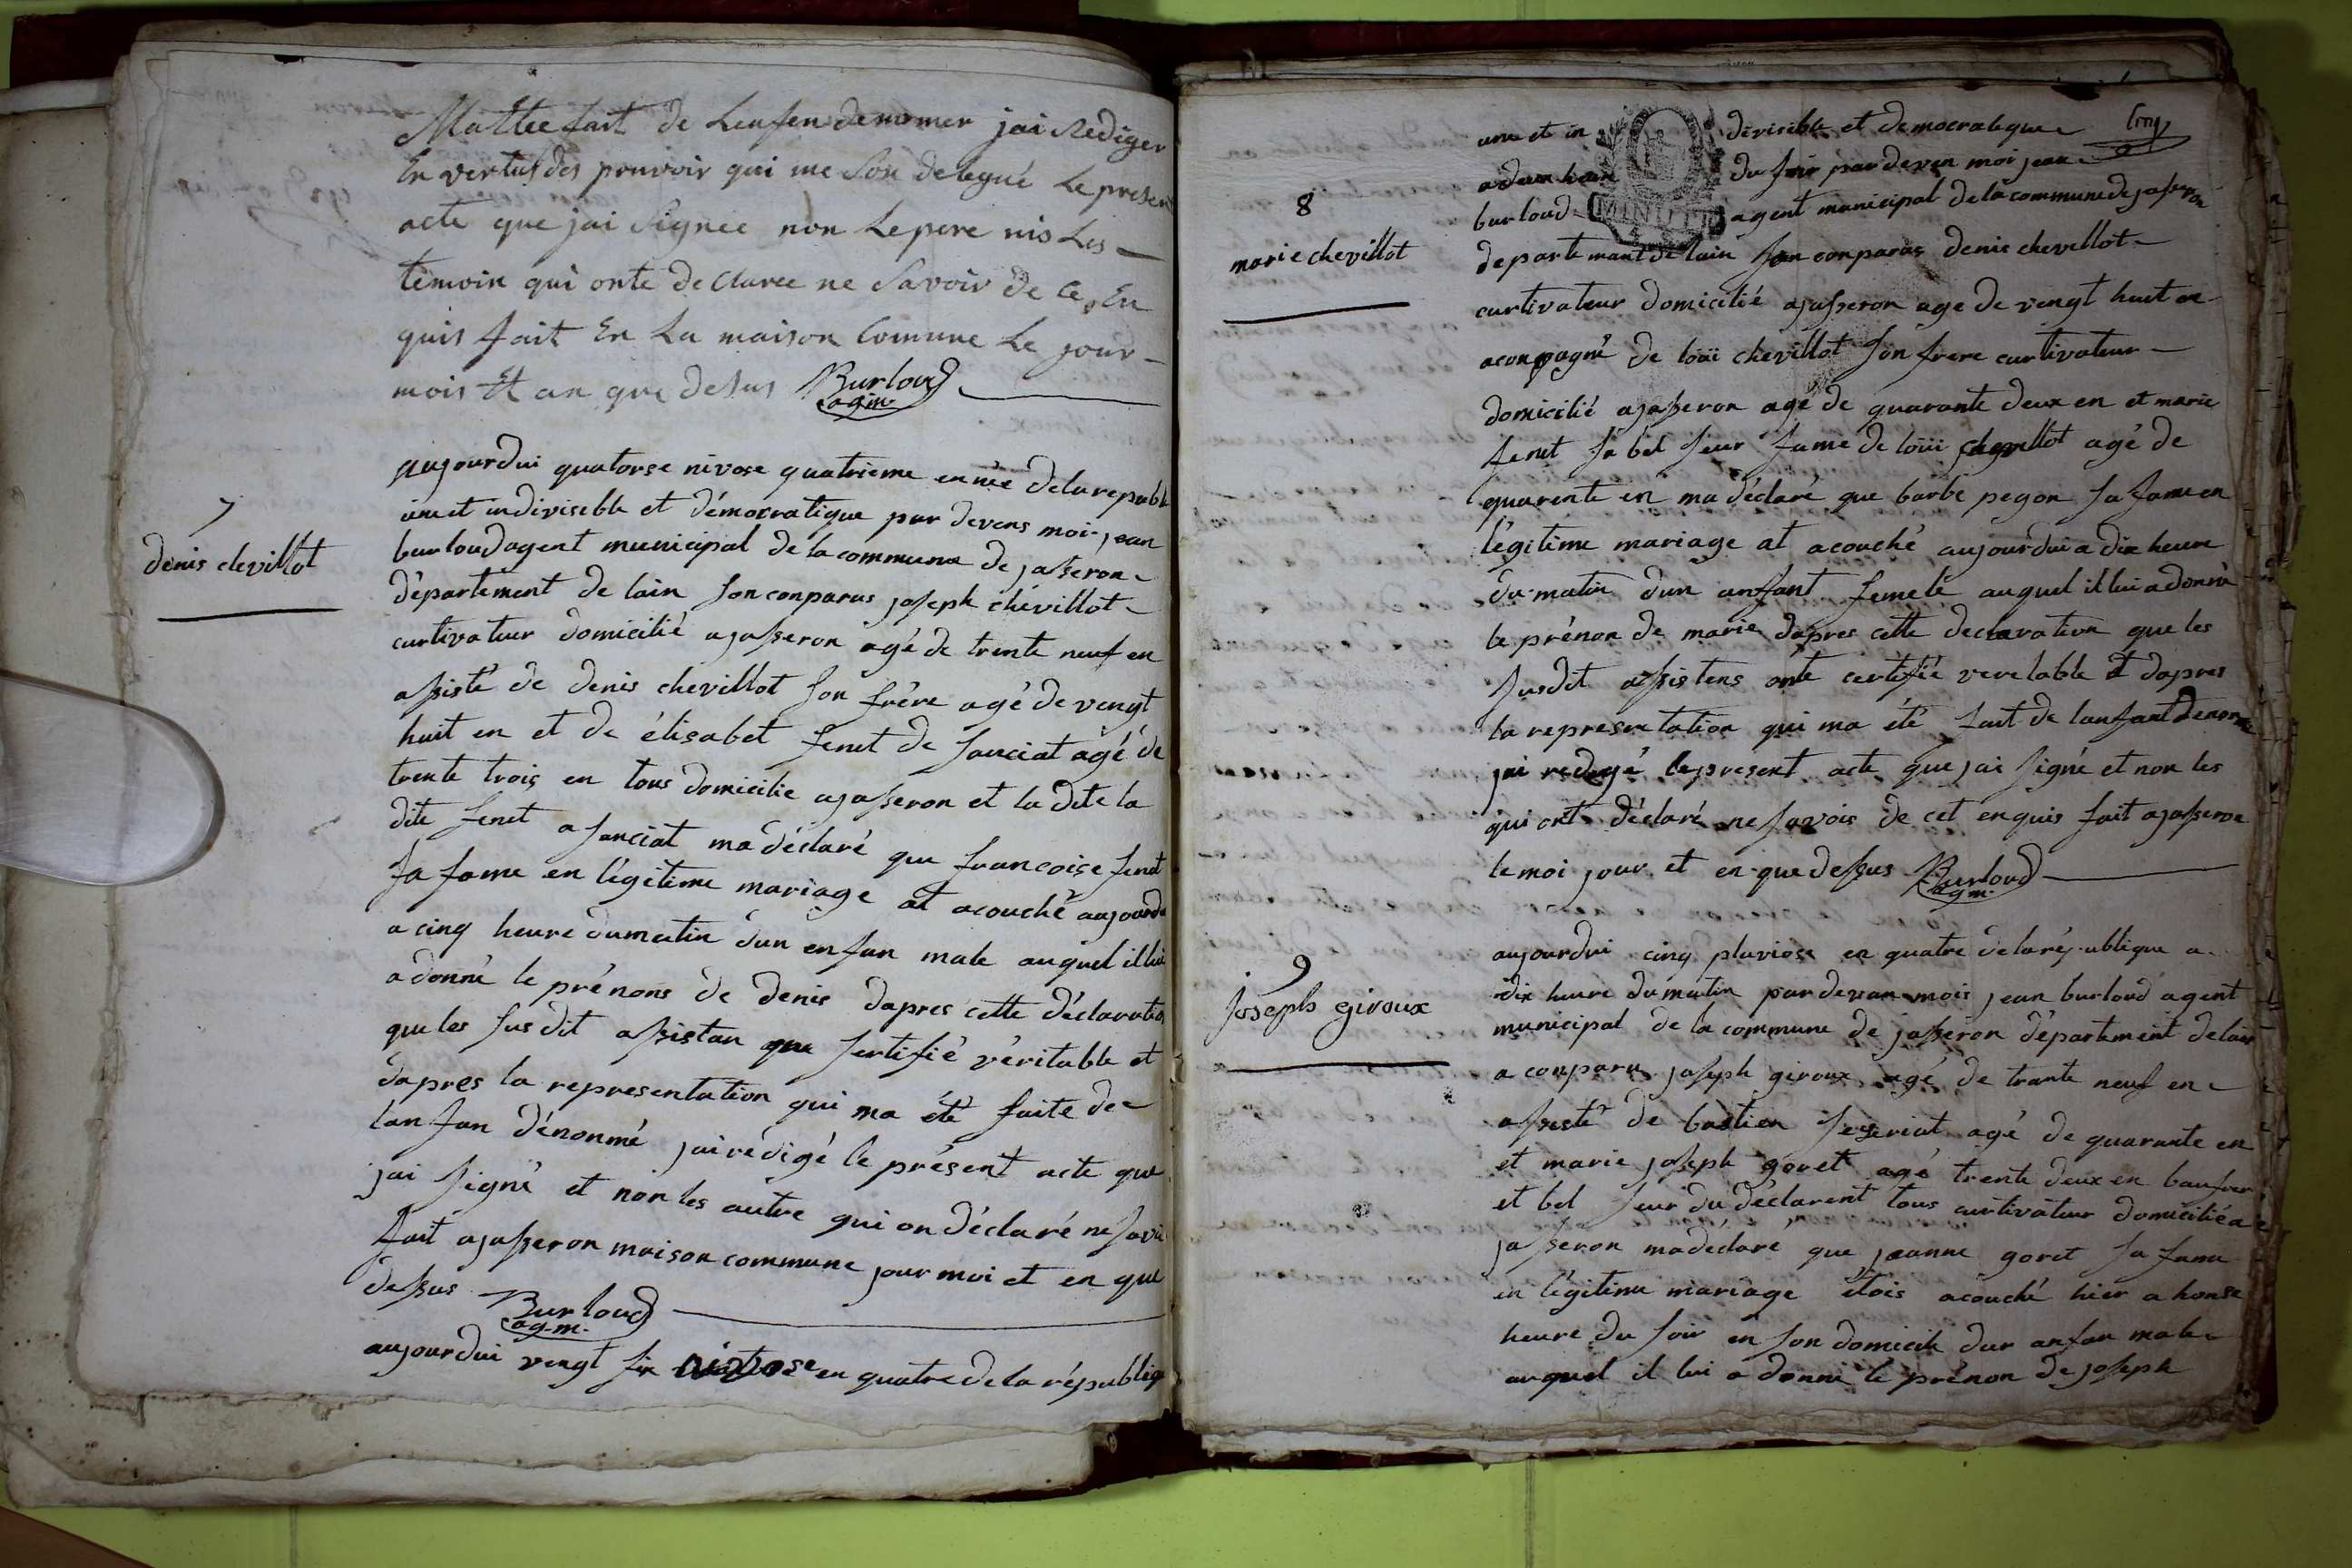 Mattee fait de Lenfen denomer jai Rediger
En vertus des pouvoir qui me son delegué Le presen
acte que jai Signée non Le pere nis Les
temoin qui onte declaree ne Savoir de ce En
quis fait En La maison Comune Le jour
mois Et an que desus Burloud
agm.
7
denis chevillot
aujourdui quatorse nivose quatrieme ennée dela republi
une et indiviseble et démocratique par devens moi jean
burloud agent municipal de la commune de jasseron
département de lain son conparus joseph chévillot
curtivateur domicilié ajasseron agé de trente neuf en
assisté de denis chevillot son frére agé de vengt
huit en et de élisabet fenet de sanciat agé de
trente trois en tous domicilie ajasseron et la dite la
dite fenet a sanciat ma déclaré que francoise fenet
sa fame en légitime mariage at acouché aujourdu
a cinq heure du matin dun enfan male auquel il lui
a donné le prénons de denis dapres cette déclaratio
que les susdit assistan que sertifié véritable et
dapres la representation qui ma été faite de
lanfan dénonmé jai rédigé le présent acte que
jai signé et non les autre qui on déclaré ne savoi
fait ajasseron maison commune jour moi et en que
dessus Burloud
ag.m.
aujourdui vengt six nivose en quatre de la républiq
une et in divisible et democratique
a deux heure du soir pardeven moi jean
burloud MINUTE agent municipal de la commune de jasseron
8
marie chevillot
departemant de lain son conparas denis chevillot
curtivateur domicilié ajasseron age de vengt huit en
aconpagné de loüi chevillot son frere curtivateur
domicilié ajasseron age de quarante deux en et marie
fenet sa bel seur fame de loüi chevillot agé de
quarente en ma déclaré que barbe pegon sa fame en
légitime mariage at acouché aujourdui a dix heure
du matin dun anfant femele auquel il lui a donné
le prénon de marie dapres cette declaration que les
susdit assistens onte certifié veretable et dapres
la representation qui ma été fait de lanfant denonmé
jai redegé le present acte que jai signé et non les
qui ont déclaré ne savois de cet enquis fait ajasseron
le moi jour et en que dessus Burloud
agm.
9
joseph giroux
aujourdui cinq pluviose en quatre dela république a
dix heure du matin pardevan mois jean burloud agent
municipal de la commune de jasseron département de lain
a conparu joseph giroux agé de trante neuf en
assisté de bastien agé de quarante en
et marie joseph goret agé trente deux en baufrer
et bel seur du déclarent tous curtivateur domicilié a
jasseron ma déclaré que jeanne goret sa fame
en légitime mariage étois acouché hier a honse
heure du soir en son domicile dun anfan male
auquel il lui a donné le prénon de joseph